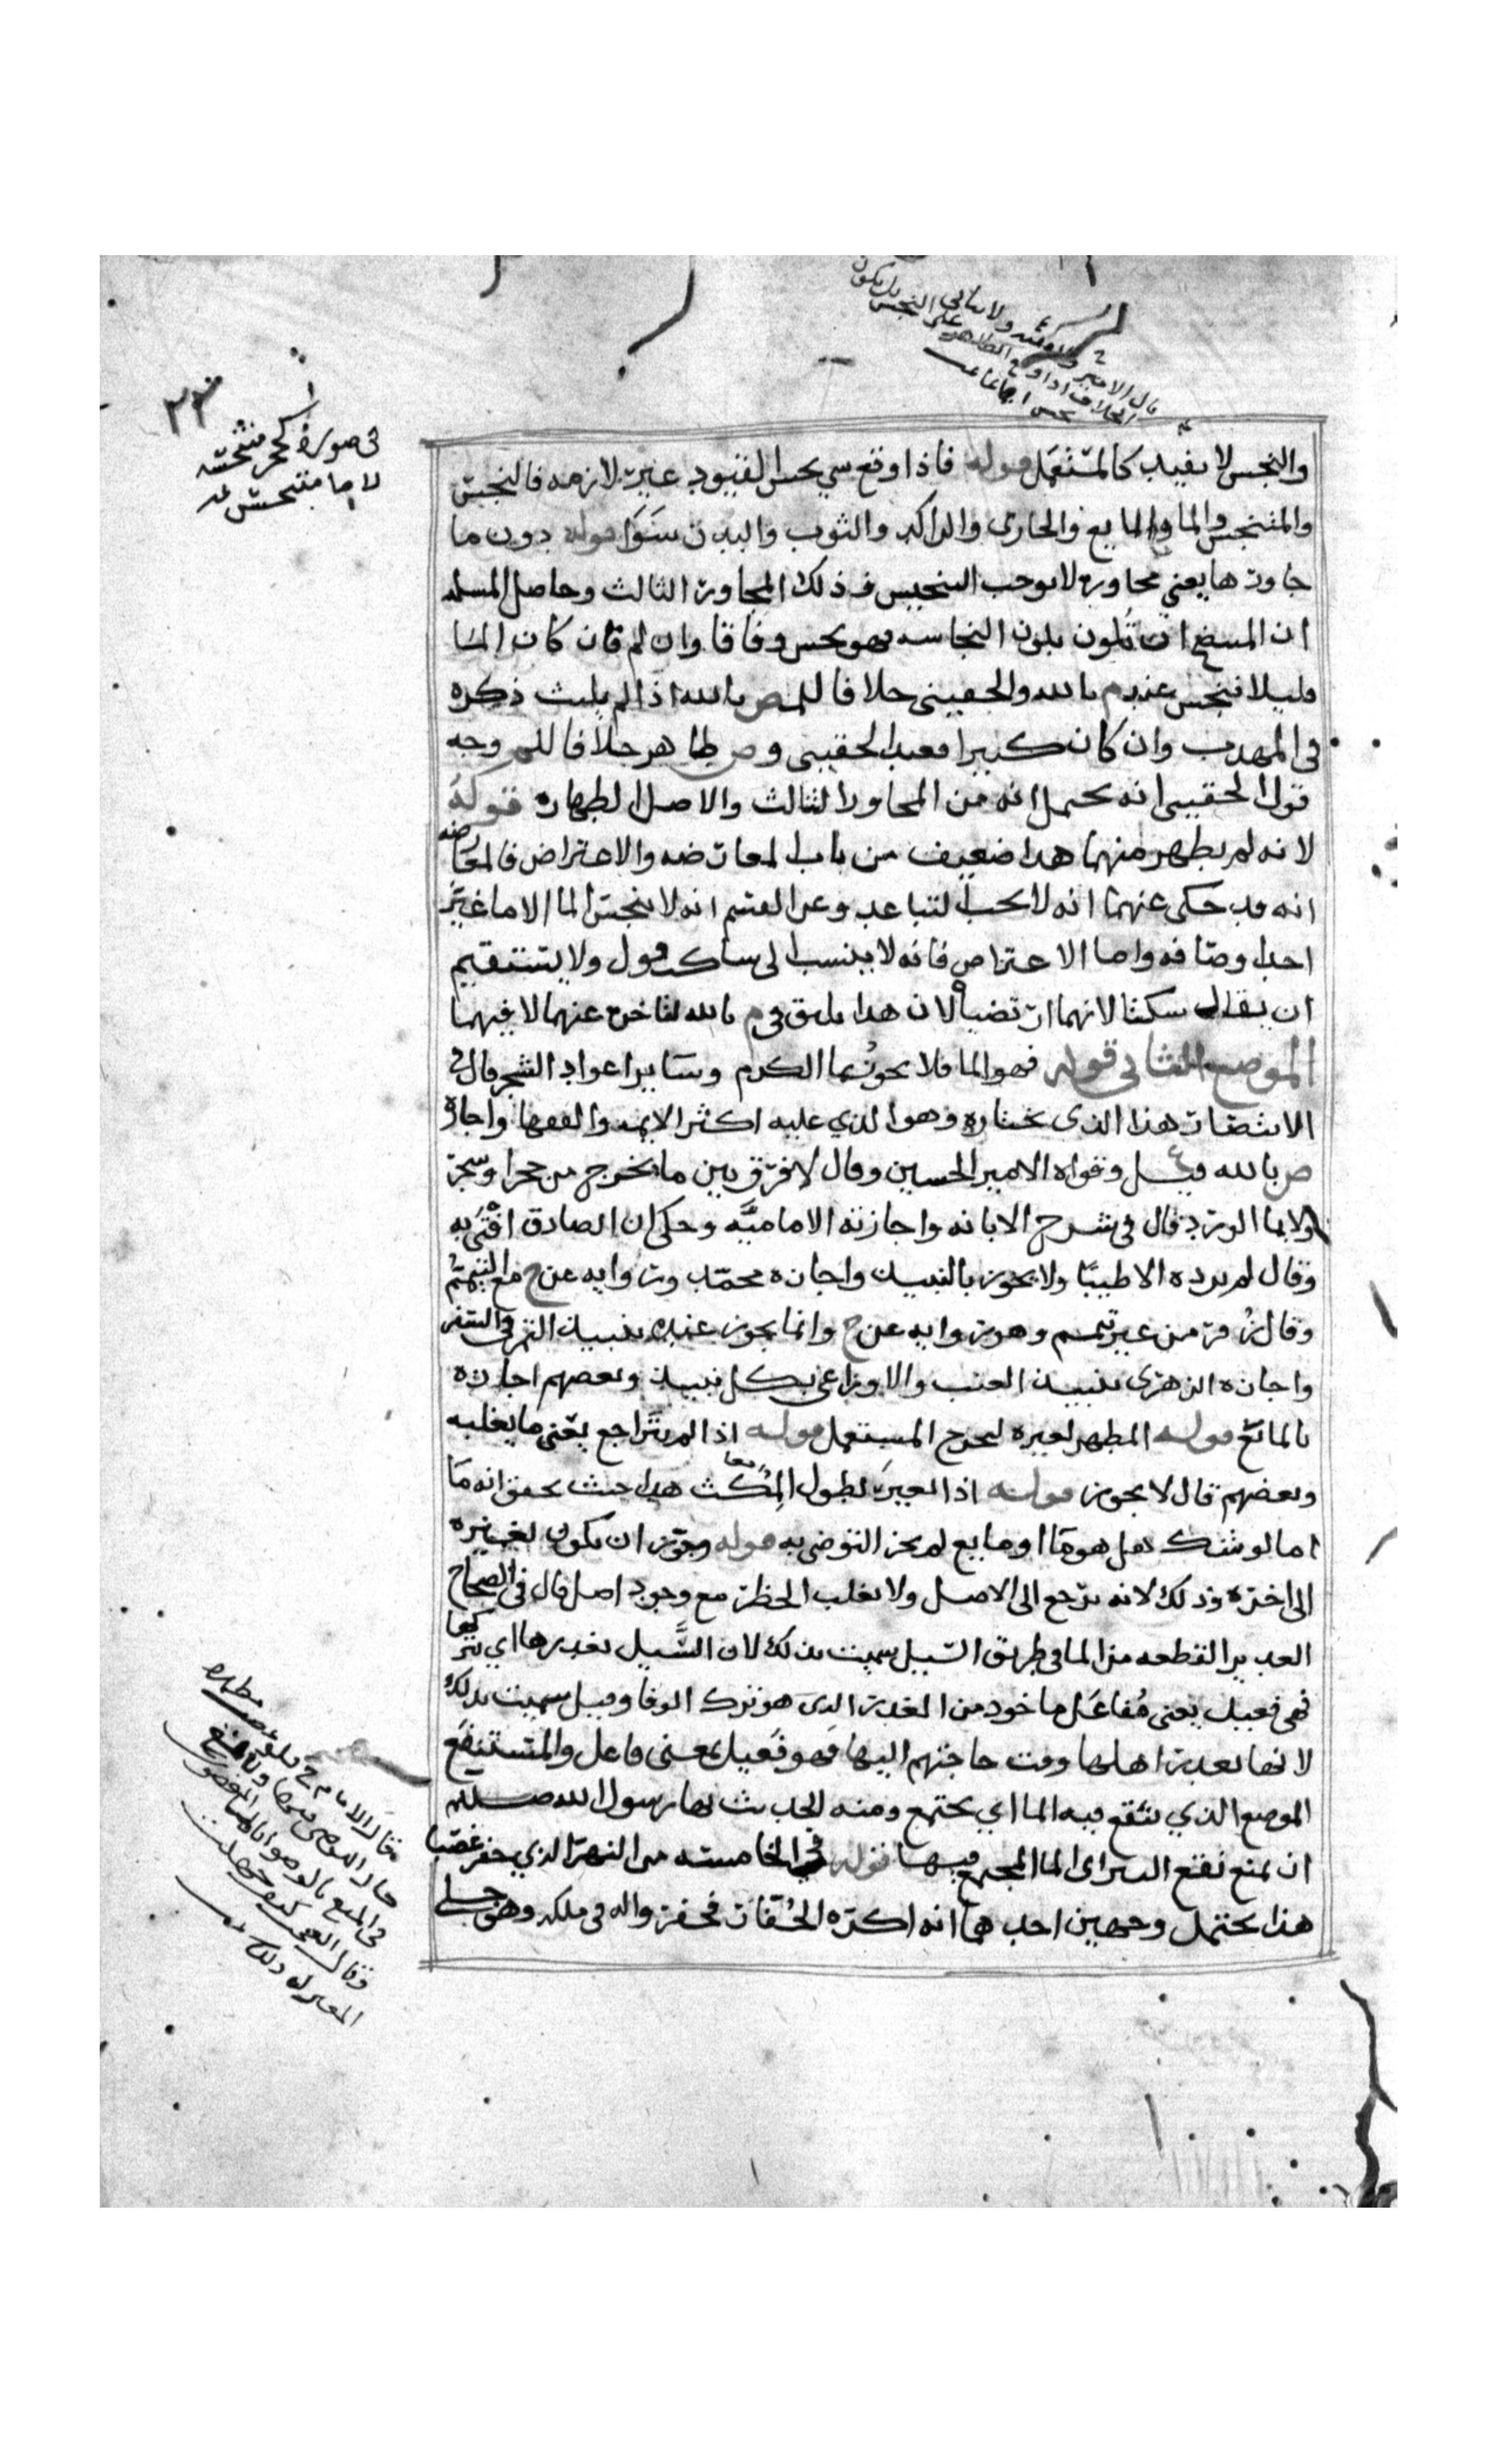 ٢٣
في صورة
لا ما متنجس
والنجس لا يفيد كالمستعمل قوله فاذا وقع شي نجس القيود غير لازمه فالنجس
والمتنجس والما والمايع والجاري والراكد والثوب والبدن سَوَا قوله دون ما
جاورها يعني مجاورة لا توجب التنجيس وذلك المجاور الثالث وحاصل المسله
ان تلون بلون النجاسه فهو نجس وفاقا وان لم فان كان الما
قليلا فنجس عند م بالله والحقيني خلافا للمص بالله اذا لم يلبث ذكره
في المهذب وان كان كثيرا فعند الحقيني و ص طاهر خلافا للم وجه
قول الحقيني انه يحتمل انه من المجاور الثالث والاصل الطهاره قوله
لانه لم يطهر منهما هذا ضعيف من باب المعارضه والاعتراض فالمعارضه
انه قد حكى عنهما انه لا يجب التباعد وعن القسم انه لا ينجس الما الا ما غيّر
احد اوصافه واما الاعتراض فانه لا ينسب الى ساكت قول ولا يستقيم
ان يقال سكتا لانهما ارتضياه لان هذا يليق في م بالله لتاخره عنهما لا فيهما
الموضع الثاني قوله فهو الما فلا يجوز بما الكرم وسَاير اعواد الشجر قال في
الانتصار هذا الذي نختاره وهو الذي عليه اكثر الايمه والفقها واجازه
ص بالله قيل وقواه الامير الحسين وقال لا فرق بين ما يخرج من حجر او شجر
ولا بما الورد قال في شرح الابانه واجازته الاماميَّه وحكى ان الصادق افتَى به
وقال لم يرده الا طيبًا ولا يجوز بالنبيذ واجازه محمّد ورواية عن ح مع التيمّم
وقال زُفر من غير تيمم وهو رواية عن ح وانما يجوز عنده بنبيذ التمر في السفر
واجازه الزهري بنبيذ العنب والاوزاعي بكل نبيذ وبعضهم اجازه
بالمائع قوله المطهر لغيره ليخرج المستعمل قوله اذا لم يتراجع يعني ما يغلبه
وبعضهم قال لا يجوز قوله اذا تغير بطول المكث هذا حيث تحقق انه مَا
اما لو شك هل هو مَا او مايع لم يجز التوضي به قوله وجوّز ان يكون لغيره
الى اخره وذلك لانه يرجع الى الاصل ولا يغلب الحظر مع وجود اصل قال في الصحاح
الغدير القطعه من الما في طريق السَّيل سميت بذلك لان السَّيل يغدرها اي يتركها
فهي فعيل بمعنى مُفاعَل ماخوذ من الغدر الذي هو ترك الوفا وقيل سميت بذلك
لانها تغدر اهلها وقت حاجتهم اليها فهو فَعيل بمعنى فاعل والمستنقَع
الموضع الذي ينقع فيه الما اي يجتمع ومنه الحديث نها رسول الله صلعم
ان يمنع نقع البير اي الما المجتمع فيها قوله في الخامسه من النهر الذي حفر غصبًا
هذا يحتمل وجهين احدهما انه اكره الحُفّار فحفر واله في ملكه وهو